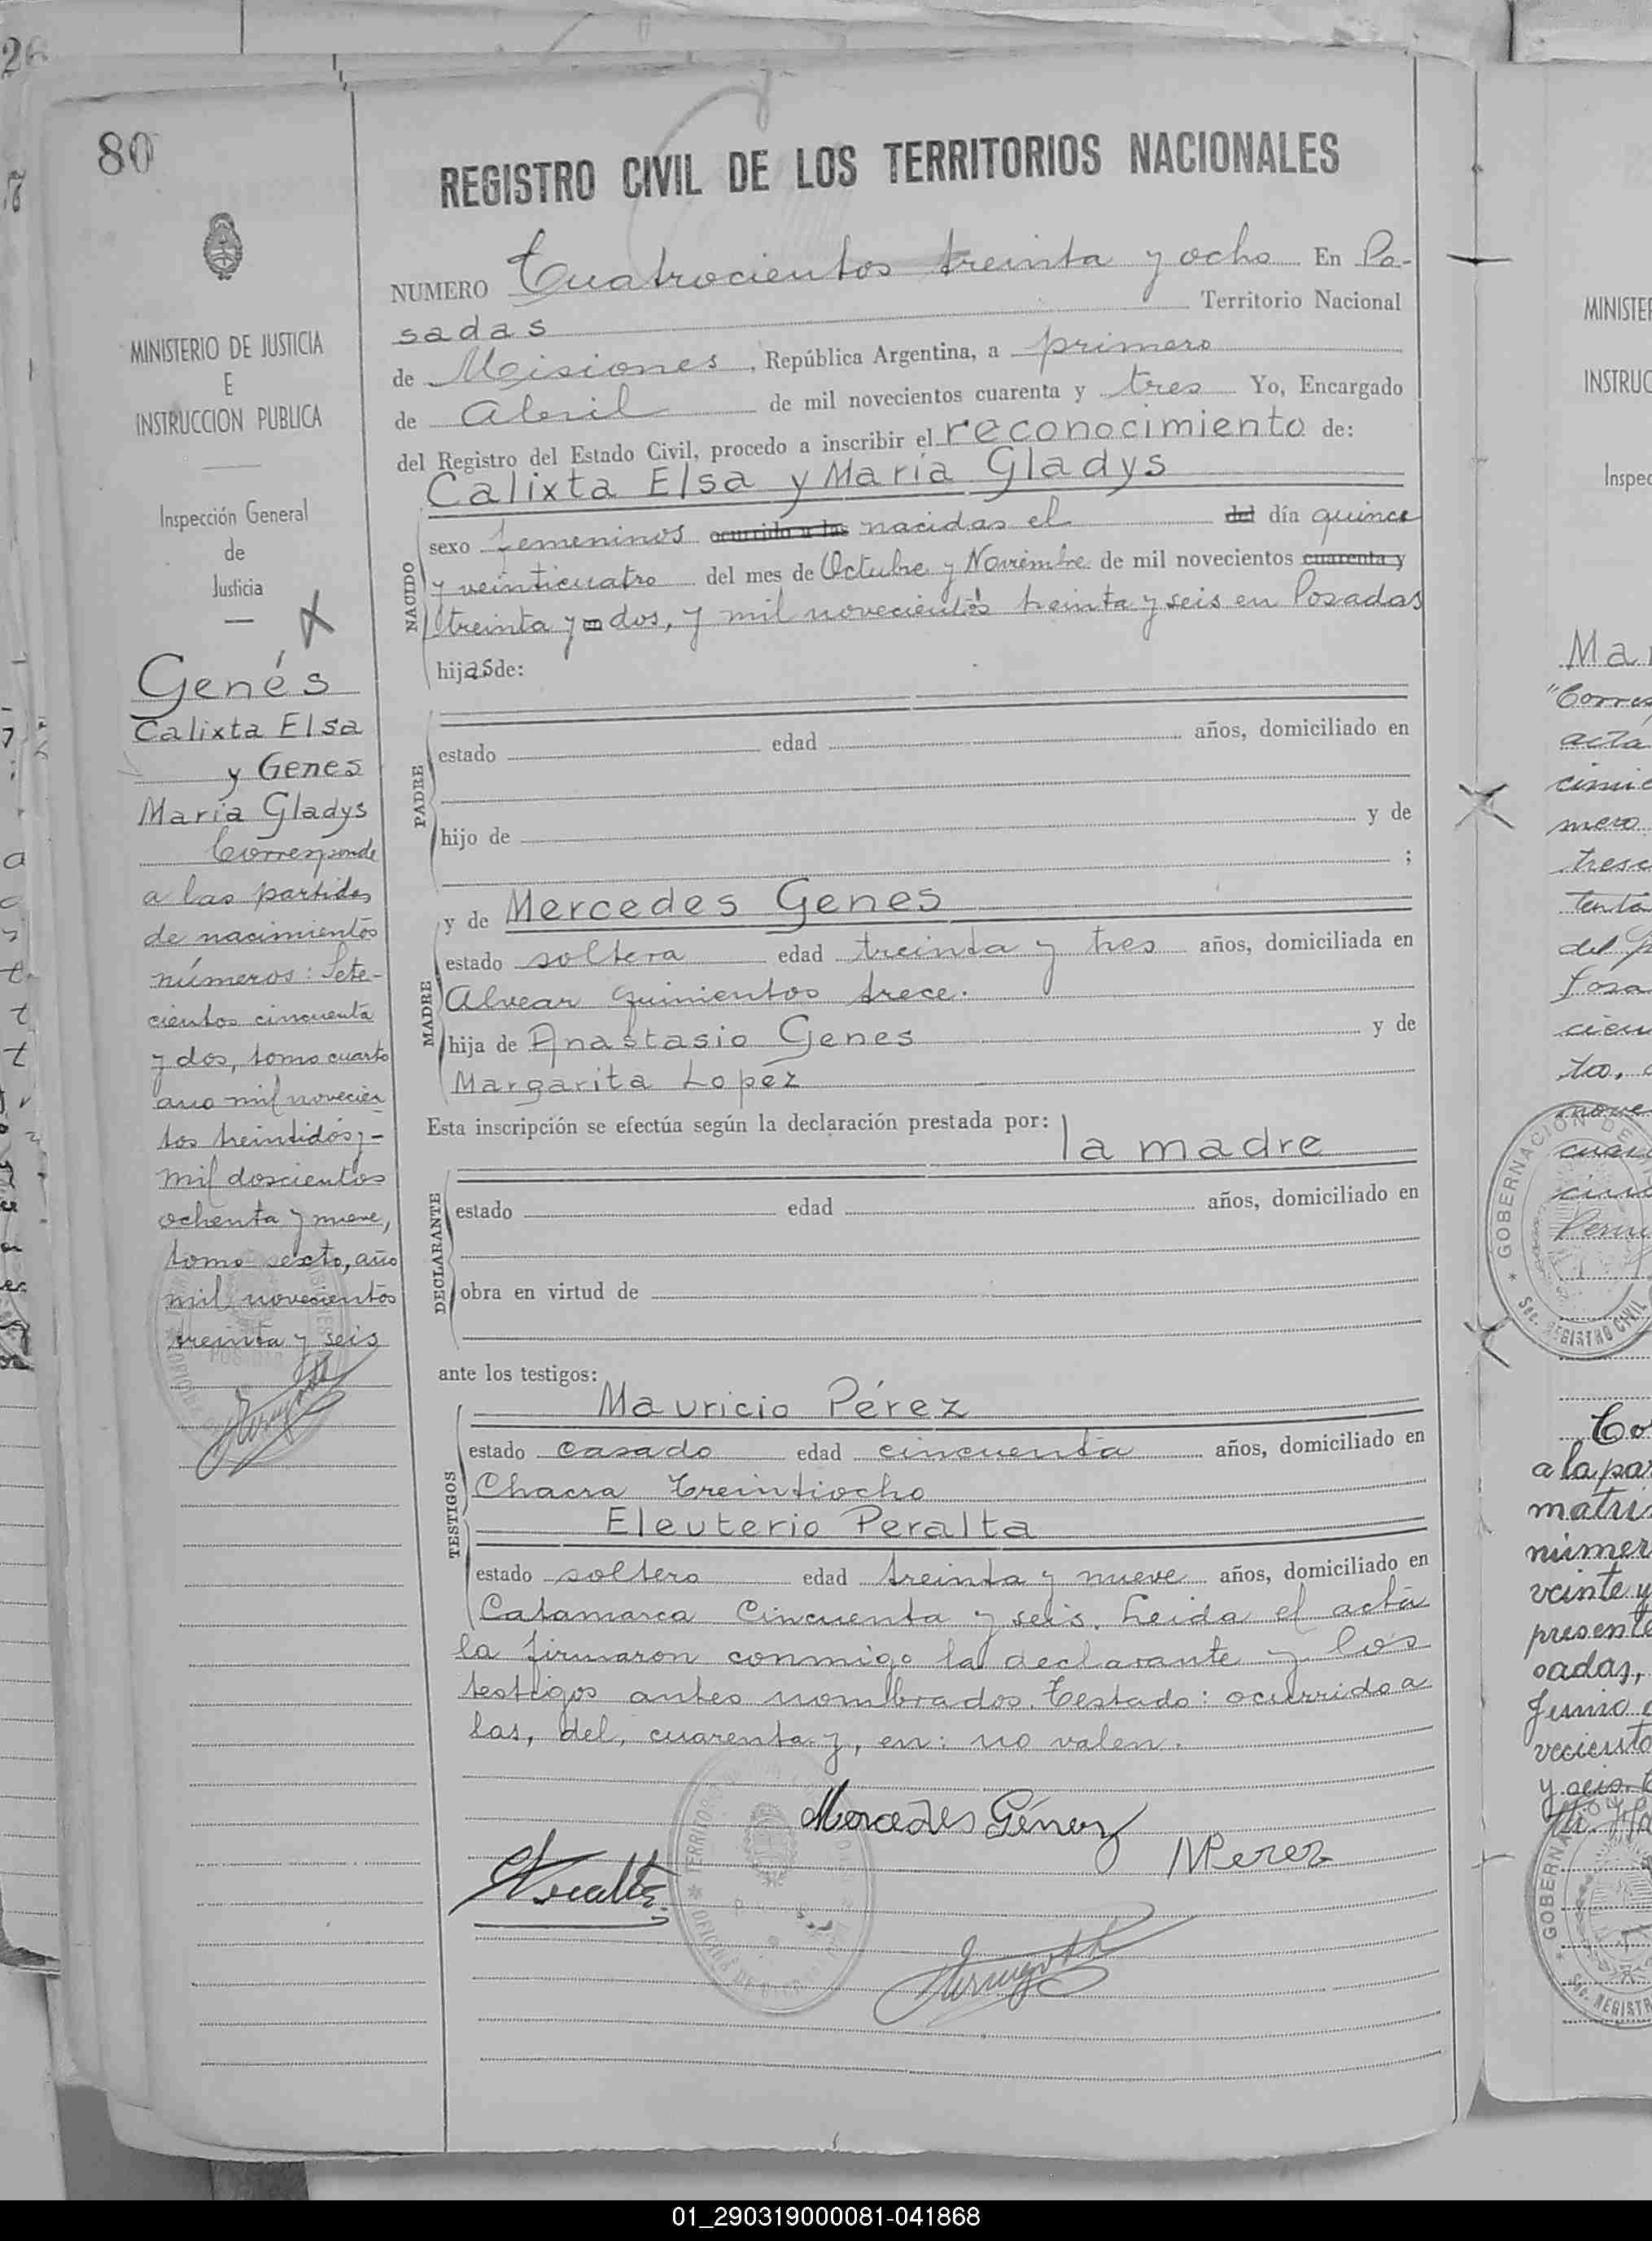 80
REGISTRO CIVIL DE LOS TERRITORIOS NACIONALES
MINISTERIO DE JUSTICIA
E
INSTRUCCION PUBLICA
Inspección General
de
Justicia
Genés
Calixta Elsa
y Genes
María Gladys
Corresponde
a las partidas
de nacimientos
números: Sete-
cientos cincuenta
y dos, tomo cuarto
año mil novecien
tos treintidós, -
mil doscientos
ochenta y nueve,
tomo sexto, año
mil novecientos
treinta y seis
NUMERO Cuatrocientos treinta y ocho En Po-
sadas Territorio Nacional
de Misiones, República Argentina, a primero
de Abril de mil novecientos cuarenta y tres Yo, Encargado
del Registro del Estado Civil, procedo a inscribir el reconocimiento de:
Calixta Elsa y María Gladys
NACIDO
sexo femeninos ocurrido a las nacidas el del día quince
y veinticuatro del mes de Octubre y Noviembre de mil novecientos cuarenta y
treinta y en dos, y mil novecientos treinta y seis en Posadas
hijas de:
PADRE
estado edad años, domiciliado en
hijo de y de
;
MADRE
y de Mercedes Genes
estado soltera edad treinta y tres años, domiciliada en
Alvear quinientos trece.
hija de Anastasio Genes y de
Margarita Lopéz
Esta inscripción se efectúa según la declaración prestada por: la madre
DECLARANTE
estado edad años, domiciliado en
obra en virtud de
ante los testigos:
TESTIGOS
Mauricio Pérez
estado casado edad cincuenta años, domiciliado en
Chacra treintiocho
Eleuterio Peralta
estado soltero edad treinta y nueve años, domiciliado en
Catamarca Cincuenta y seis. Leida el acta
la firmaron conmigo la declarante y los
testigos antes nombrados. Testado: ocurrido a
las, del, cuarenta y, en: no valen.
Mercedes Génez
MPerez
Peralta
MINISTER
INSTRUC
Inspec
GOBERNACION DE
Sec. REGISTRO CIVIL
Co
a la par
matri
númer
veinte y
presente
sadas,
Junio
GOBERNA
Sec. REGISTR
01_290319000081-041868